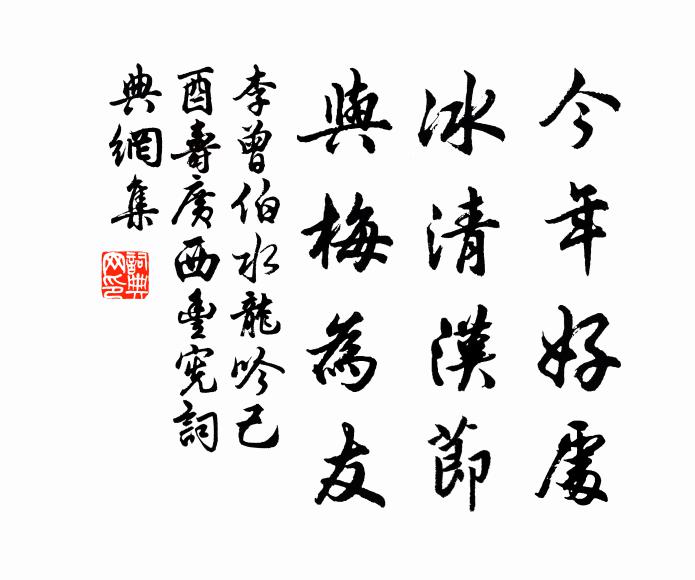 今年好處
冰清漢節
與梅為友
李曾伯水龍吟己
酉壽廣西豐憲詞
典網集
詞典網印